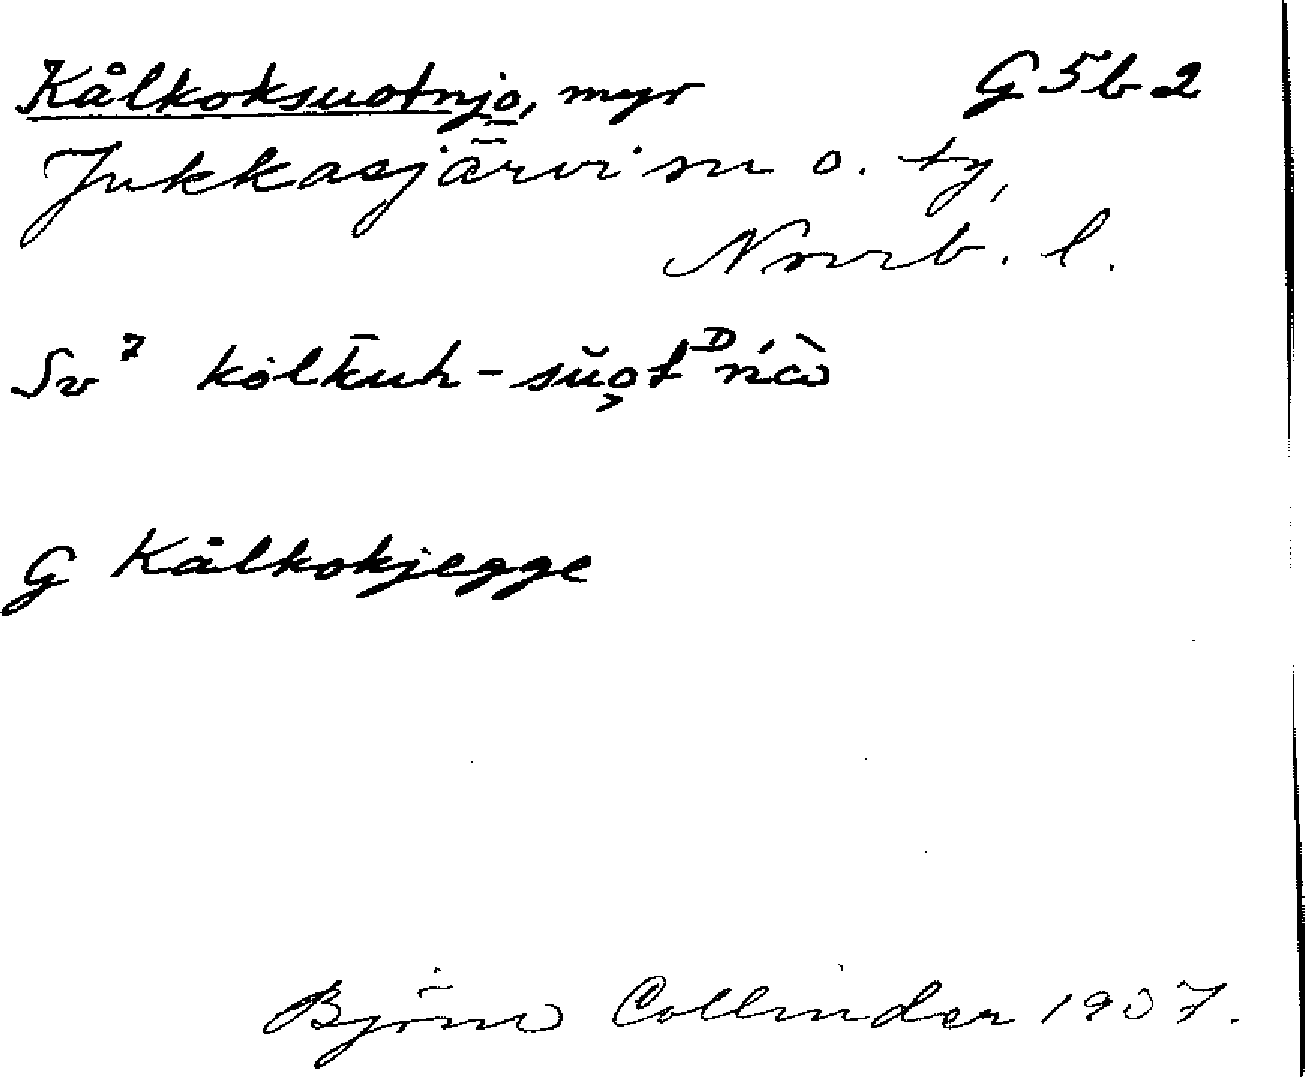 Kålkoksuotnjo, myr G5b2
Jukkasjärvi sn o. ty,
Norrb. l.
Sv 7 kölk̄uh-sŭo̭tᴰń̀ω
G Kålkokjegge
Björn Collinder 1937.